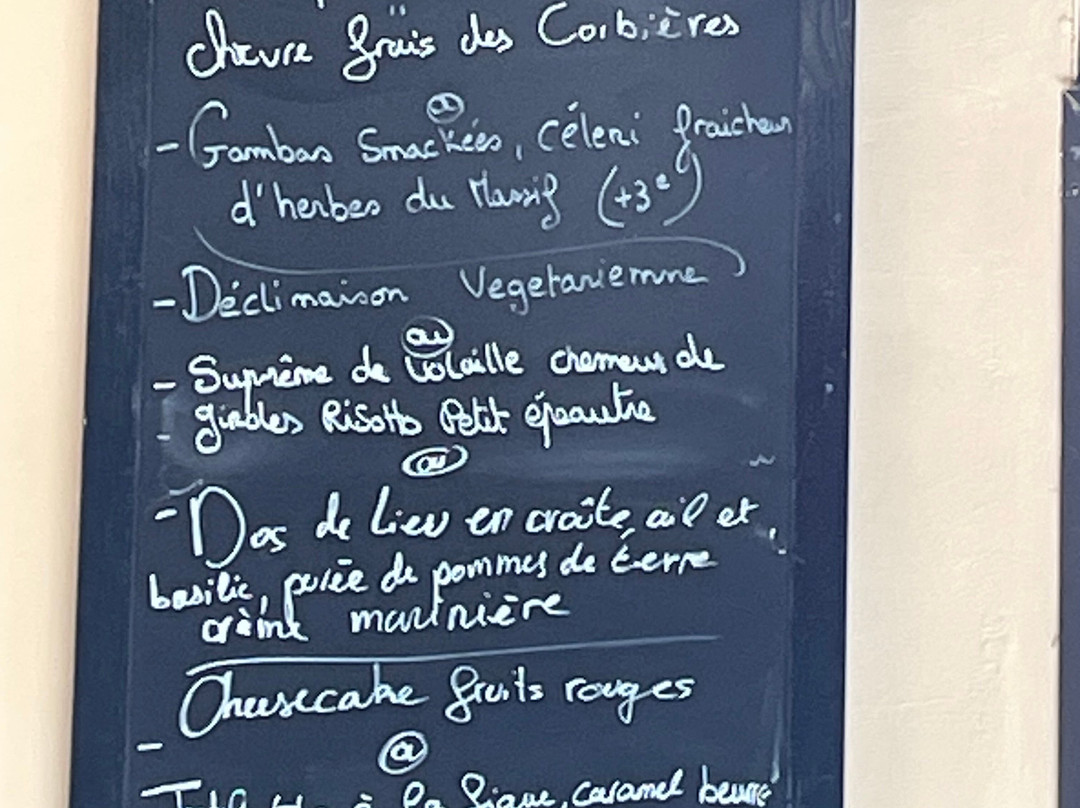 chèvre frais des Corbières
ou
- Gambas Smackées, céleri fraicheur
d'herbes du Massif (+3€)
- Déclinaison Vegetarienne
ou
- Suprême de Volaille cremeux de
- giroles Risotto Petit épeautre
ou
- Dos de Lieu en croûte, ail et
basilic, purée de pommes de terre
crème marinière
Cheesecake fruits rouges
-
ou
à la figue, caramel beurre